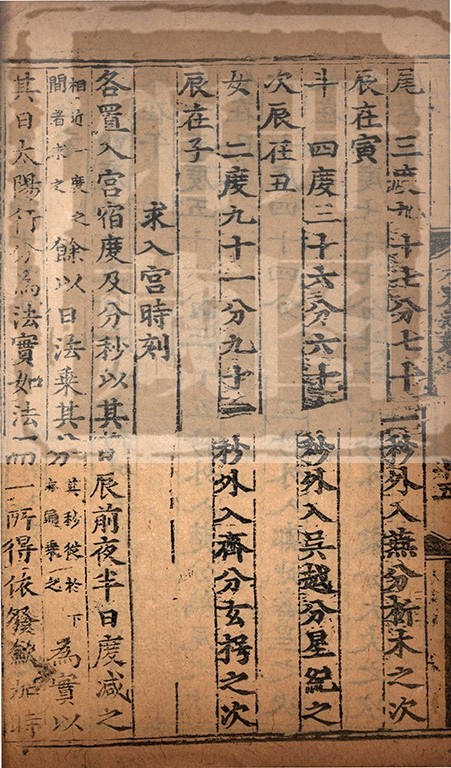 尾 三度九十七分七十秒外入燕分析木之次
辰在寅
斗 四度三十六分六十秒外入吳越分星紀之
次辰在丑
女 二度九十一分九十秒外入齊分玄枵之次
辰在子
求入宮時刻
各置入宮宿度及分秒以其辰前夜半日度減之
相近一度之
間者求之
餘以日法乘其分
其秒從於下
亦通乘之
為實以
其日太陽行分為法實如法而一所得依發斂加時